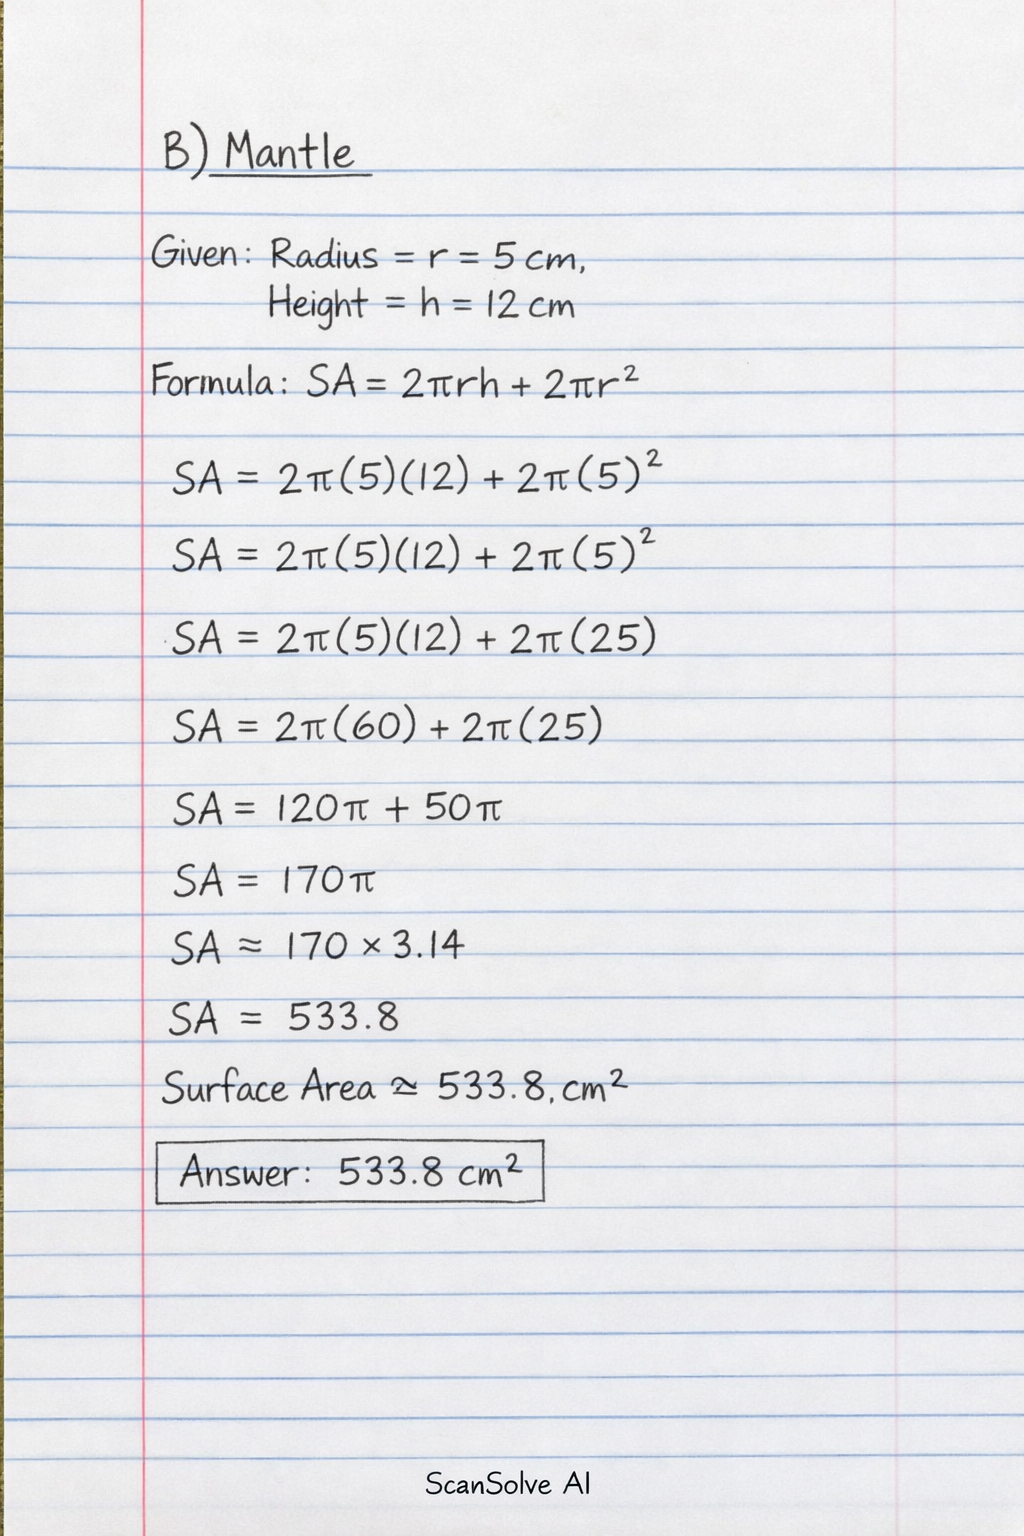 B) Mantle
Given: Radius = r = 5 cm,
Height = h = 12 cm
Formula: SA = 2πrh + 2πr²
SA = 2π(5)(12) + 2π(5)²
SA = 2π(5)(12) + 2π(5)²
SA = 2π(5)(12) + 2π(25)
SA = 2π(60) + 2π(25)
SA = 120π + 50π
SA = 170π
SA ≈ 170 × 3.14
SA = 533.8
Surface Area ≃ 533.8, cm²
Answer: 533.8 cm²
ScanSolve AI